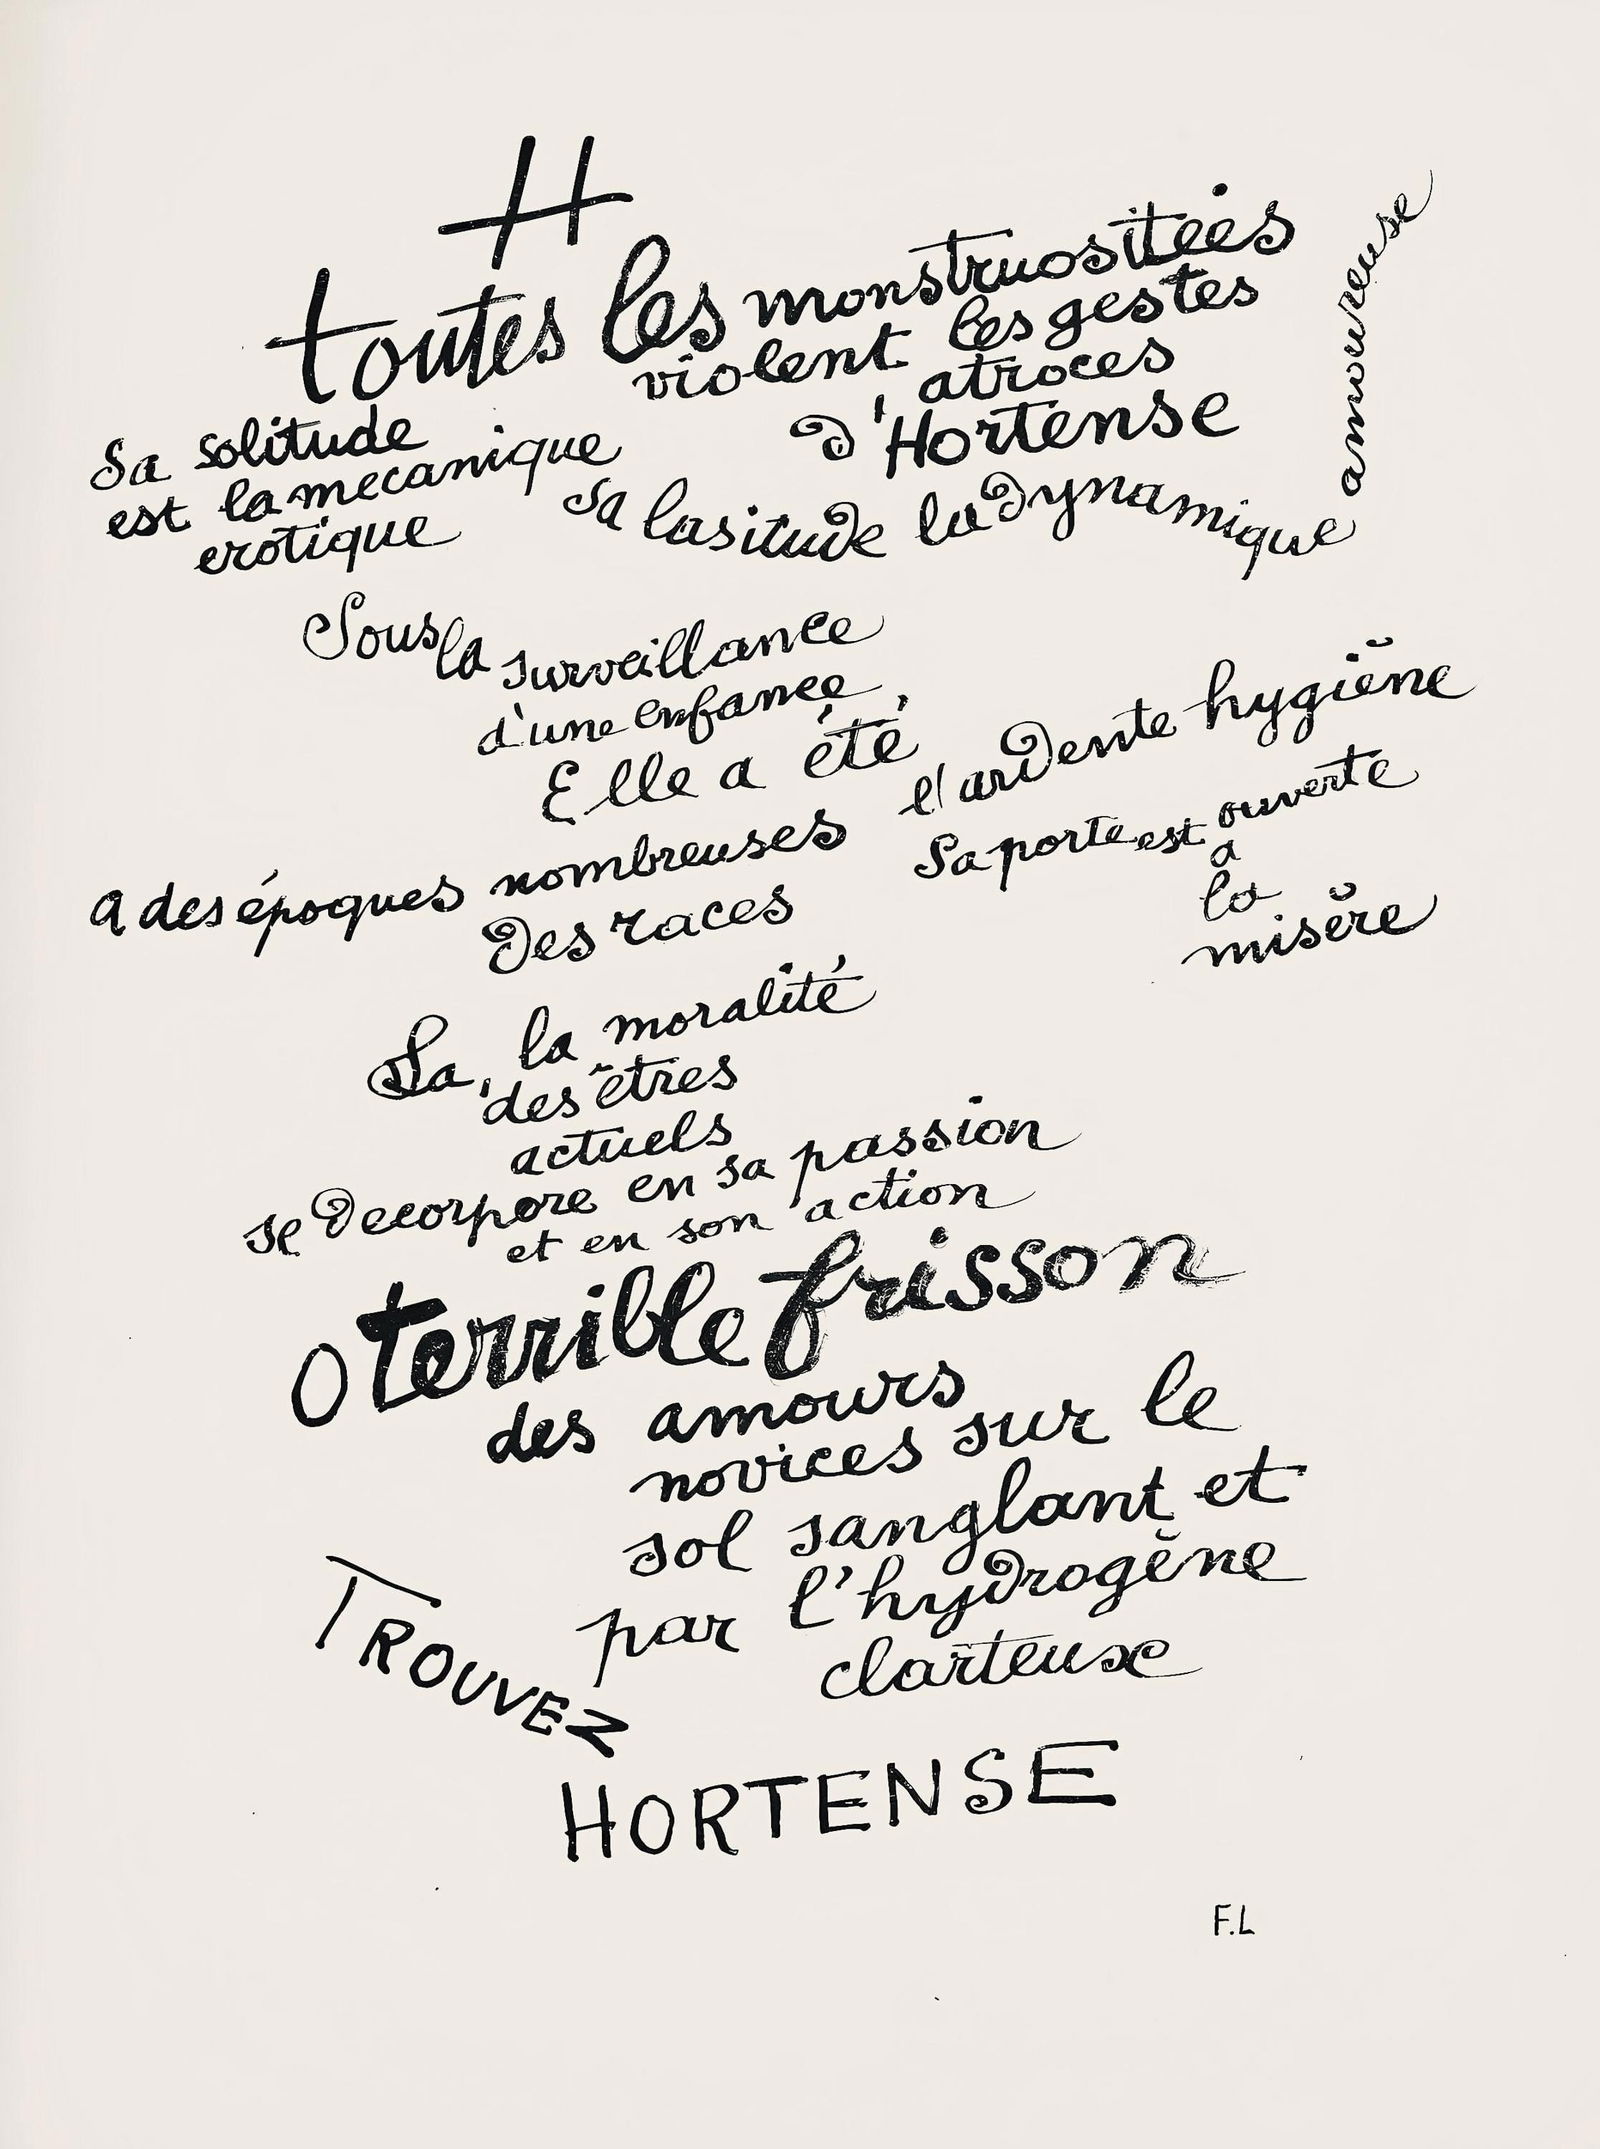 H
toutes les monstruositées
violent les gestes
atroces
d'Hortense
Sa solitude
est la mecanique
erotique
sa lasitude la dynamique
amoureuse
Sous la surveillance
d'une enfance
Elle a été
a des époques nombreuses
l'ardente hygiène
des races
Sa porte est ouverte
a
la
misère
La, la moralité
des êtres
actuels
se decorpore en sa passion
et en son action
O terrible frisson
des amours
novices sur le
sol sanglant et
par l'hydrogène
clarteuse
TROUVEZ
HORTENSE
F.L